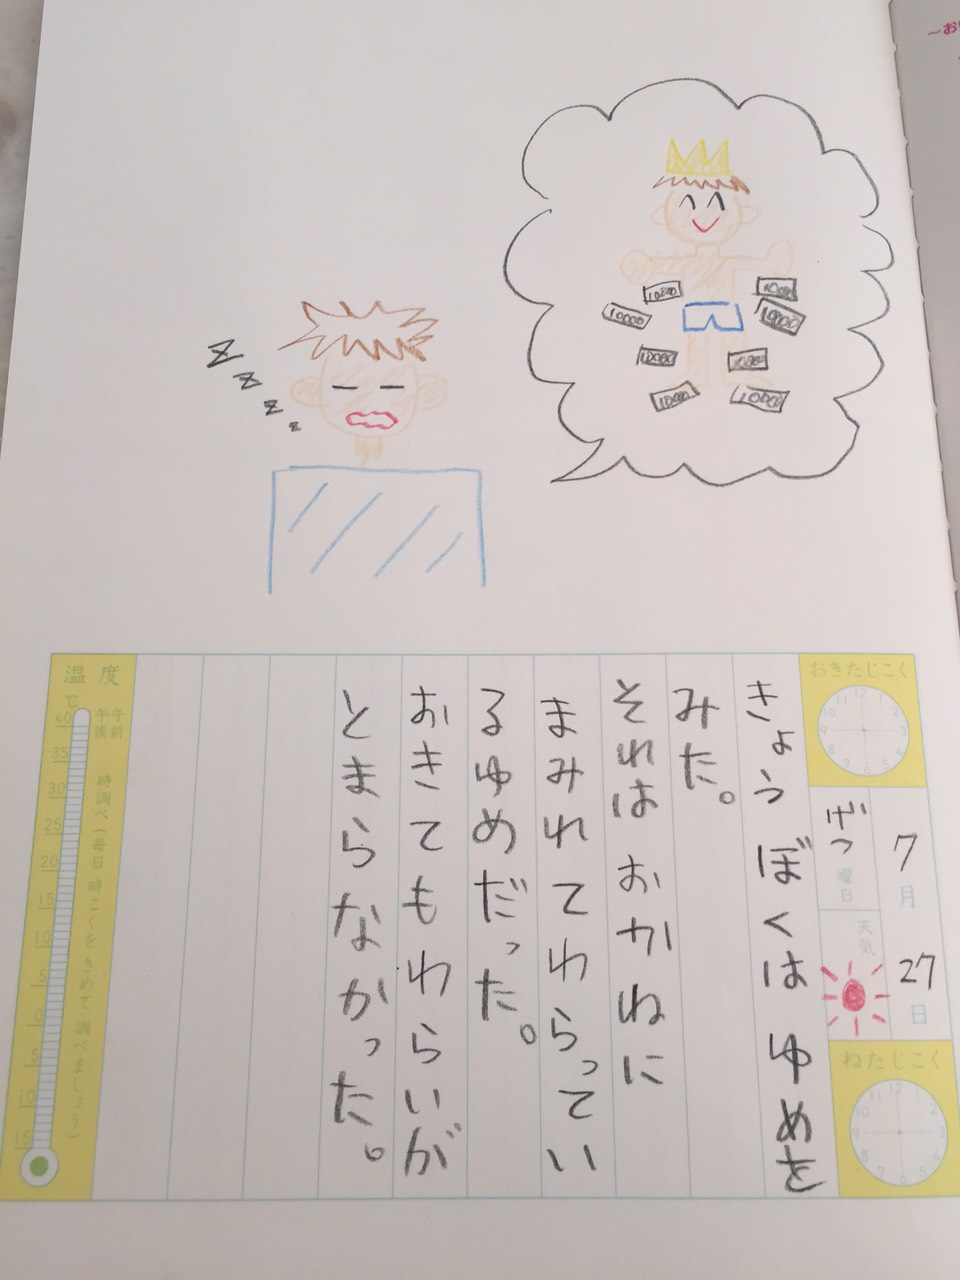 ~お
z
z
z
z
10000
10000
10000
10000
10000
10000
10000
10000
おきたじこく
7月27日
げつ曜日
天気
ねたじこく
きょう ぼくは ゆめを
みた。
それは おかねに
まみれてわらってい
るゆめだった。
おきてもわらいが
とまらなかった。
温度
℃
午前
午後
時調べ(毎日 時こくをきめて 調べましょう)
40
35
30
25
20
15
10
5
0
5
10
15